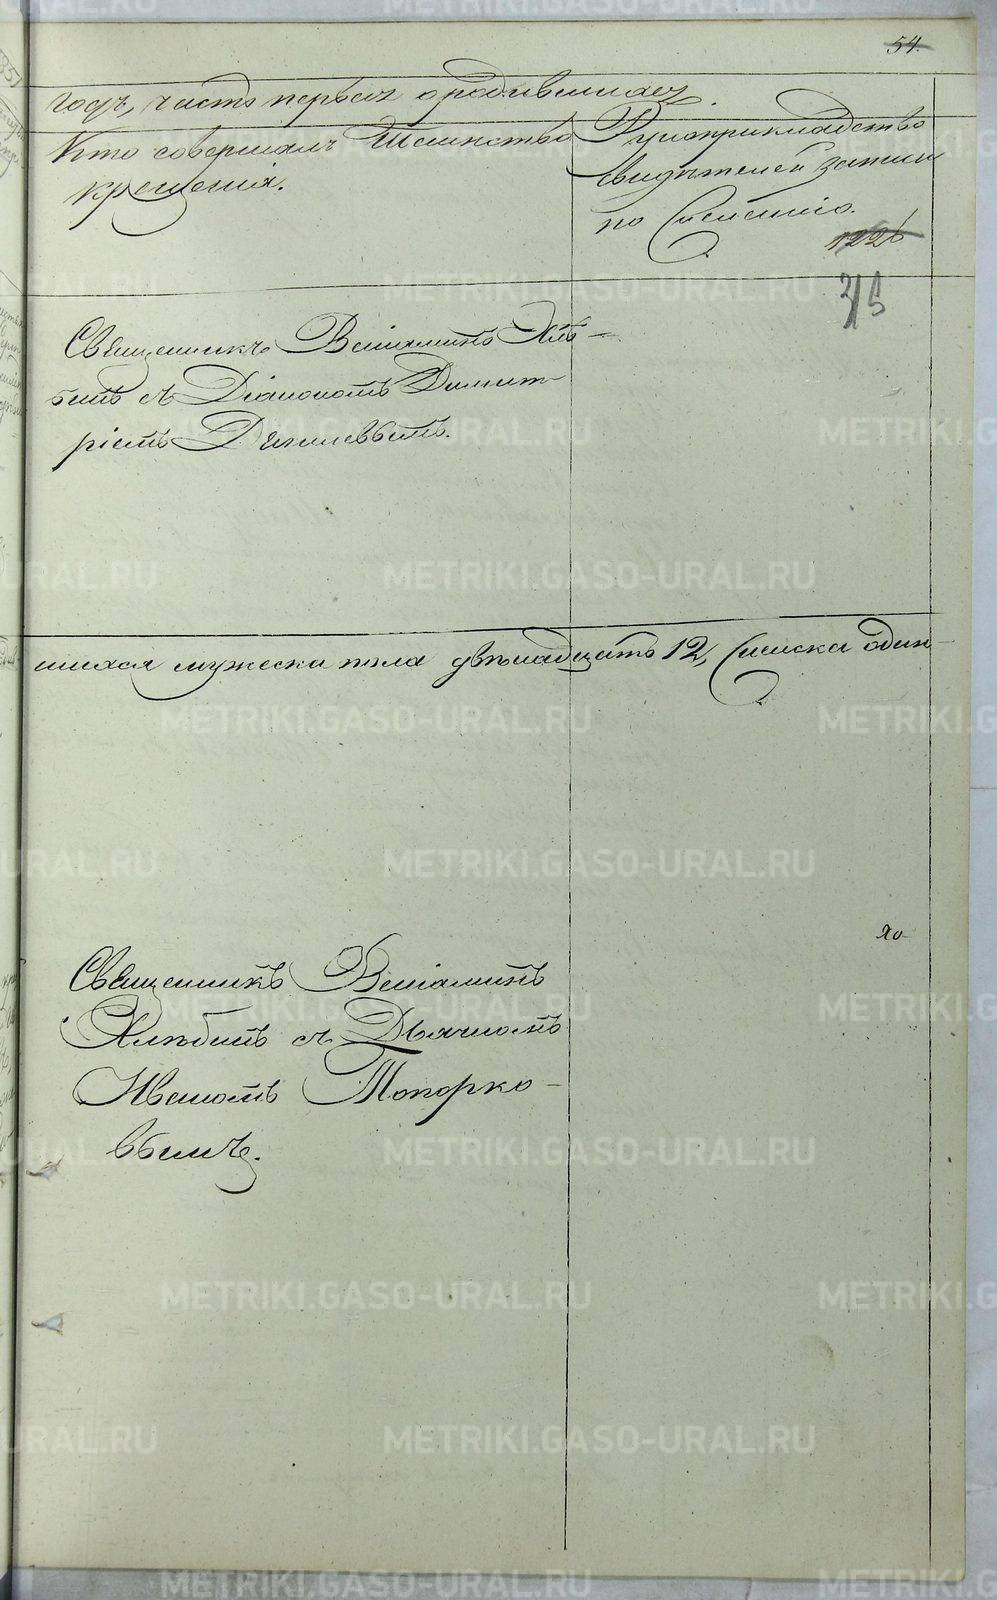 54.
годъ, часть первая о родившихся.
Кто совершалъ Таинство
крещенія.
Рукоприкладство
свидѣтелей записи
по желанію.
1226
Священникъ Веніаминъ Хлѣ-
бинъ съ Діакономъ Димит-
ріемъ
шихся мужеска пола двѣнадцать 12, женска один-
Священникъ Веніаминъ
Хлѣбинъ съ Дьячкомъ
Иваномъ Топорко-
вымъ.
METRIKI.GASO-URAL.RU